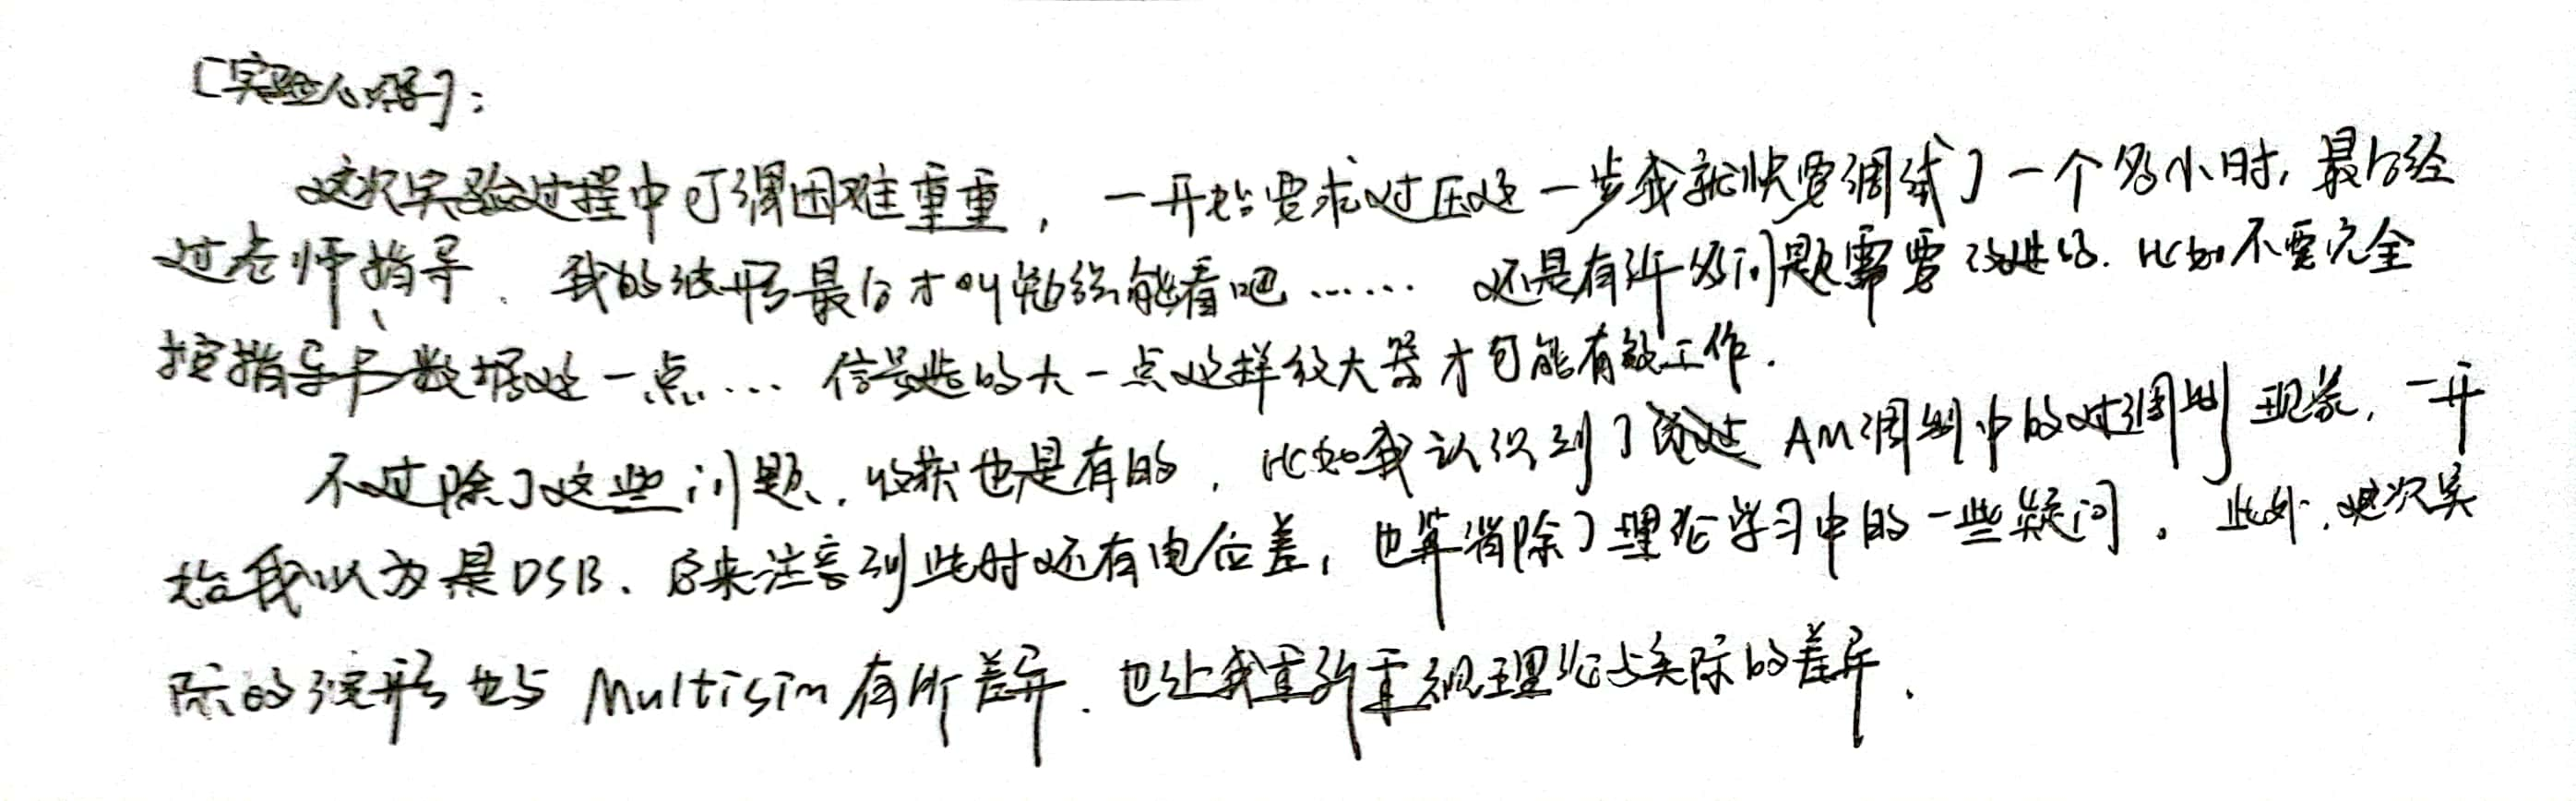 [实验心得]:
这次实验过程中可谓困难重重, 一开始要求过压这一步我就快要调试了一个多小时, 最后经
过老师指导、我的波形最后才叫勉强能看吧…… 还是有许多问题需要改进的. 比如不要完全
按指导书数据这一点… 信号选的大一点这样放大器才可能有效工作.
不过除了这些问题, 收获也是有的, 比如我认识到了 AM调制中的过调制现象, 一开
始我以为是DSB、后来注意到此时还有电位差, 也算消除了理论学习中的一些疑问。此外, 这次实
际的波形也与 Multisim 有所差异. 也让我重新重视理论与实际的差异.